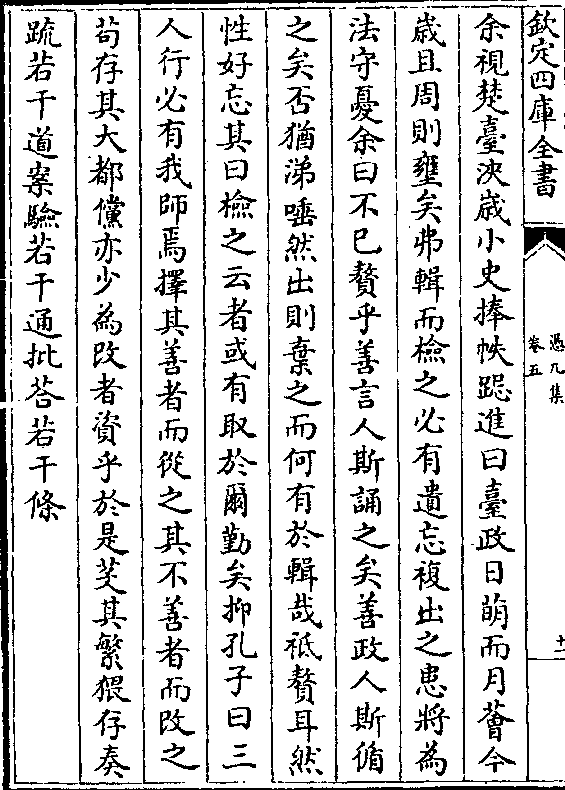 欽定四庫全書
憑几集
卷五
十一
余視楚臺浹歳小史捧帙跽進曰臺政日萌而月薈今
歳且周則壅矣弗輯而檢之必有遺忘複出之患將為
法守憂余曰不已贅乎善言人斯誦之矣善政人斯循
之矣否猶涕唾然出則棄之而何有於輯哉祇贅耳然
性好忘其曰檢之云者或有取於爾勤矣抑孔子曰三
人行必有我師焉擇其善者而從之其不善者而改之
苟存其大都儻亦少為改者資乎於是芟其繁猥存奏
疏若干道案驗若干通批荅若干條